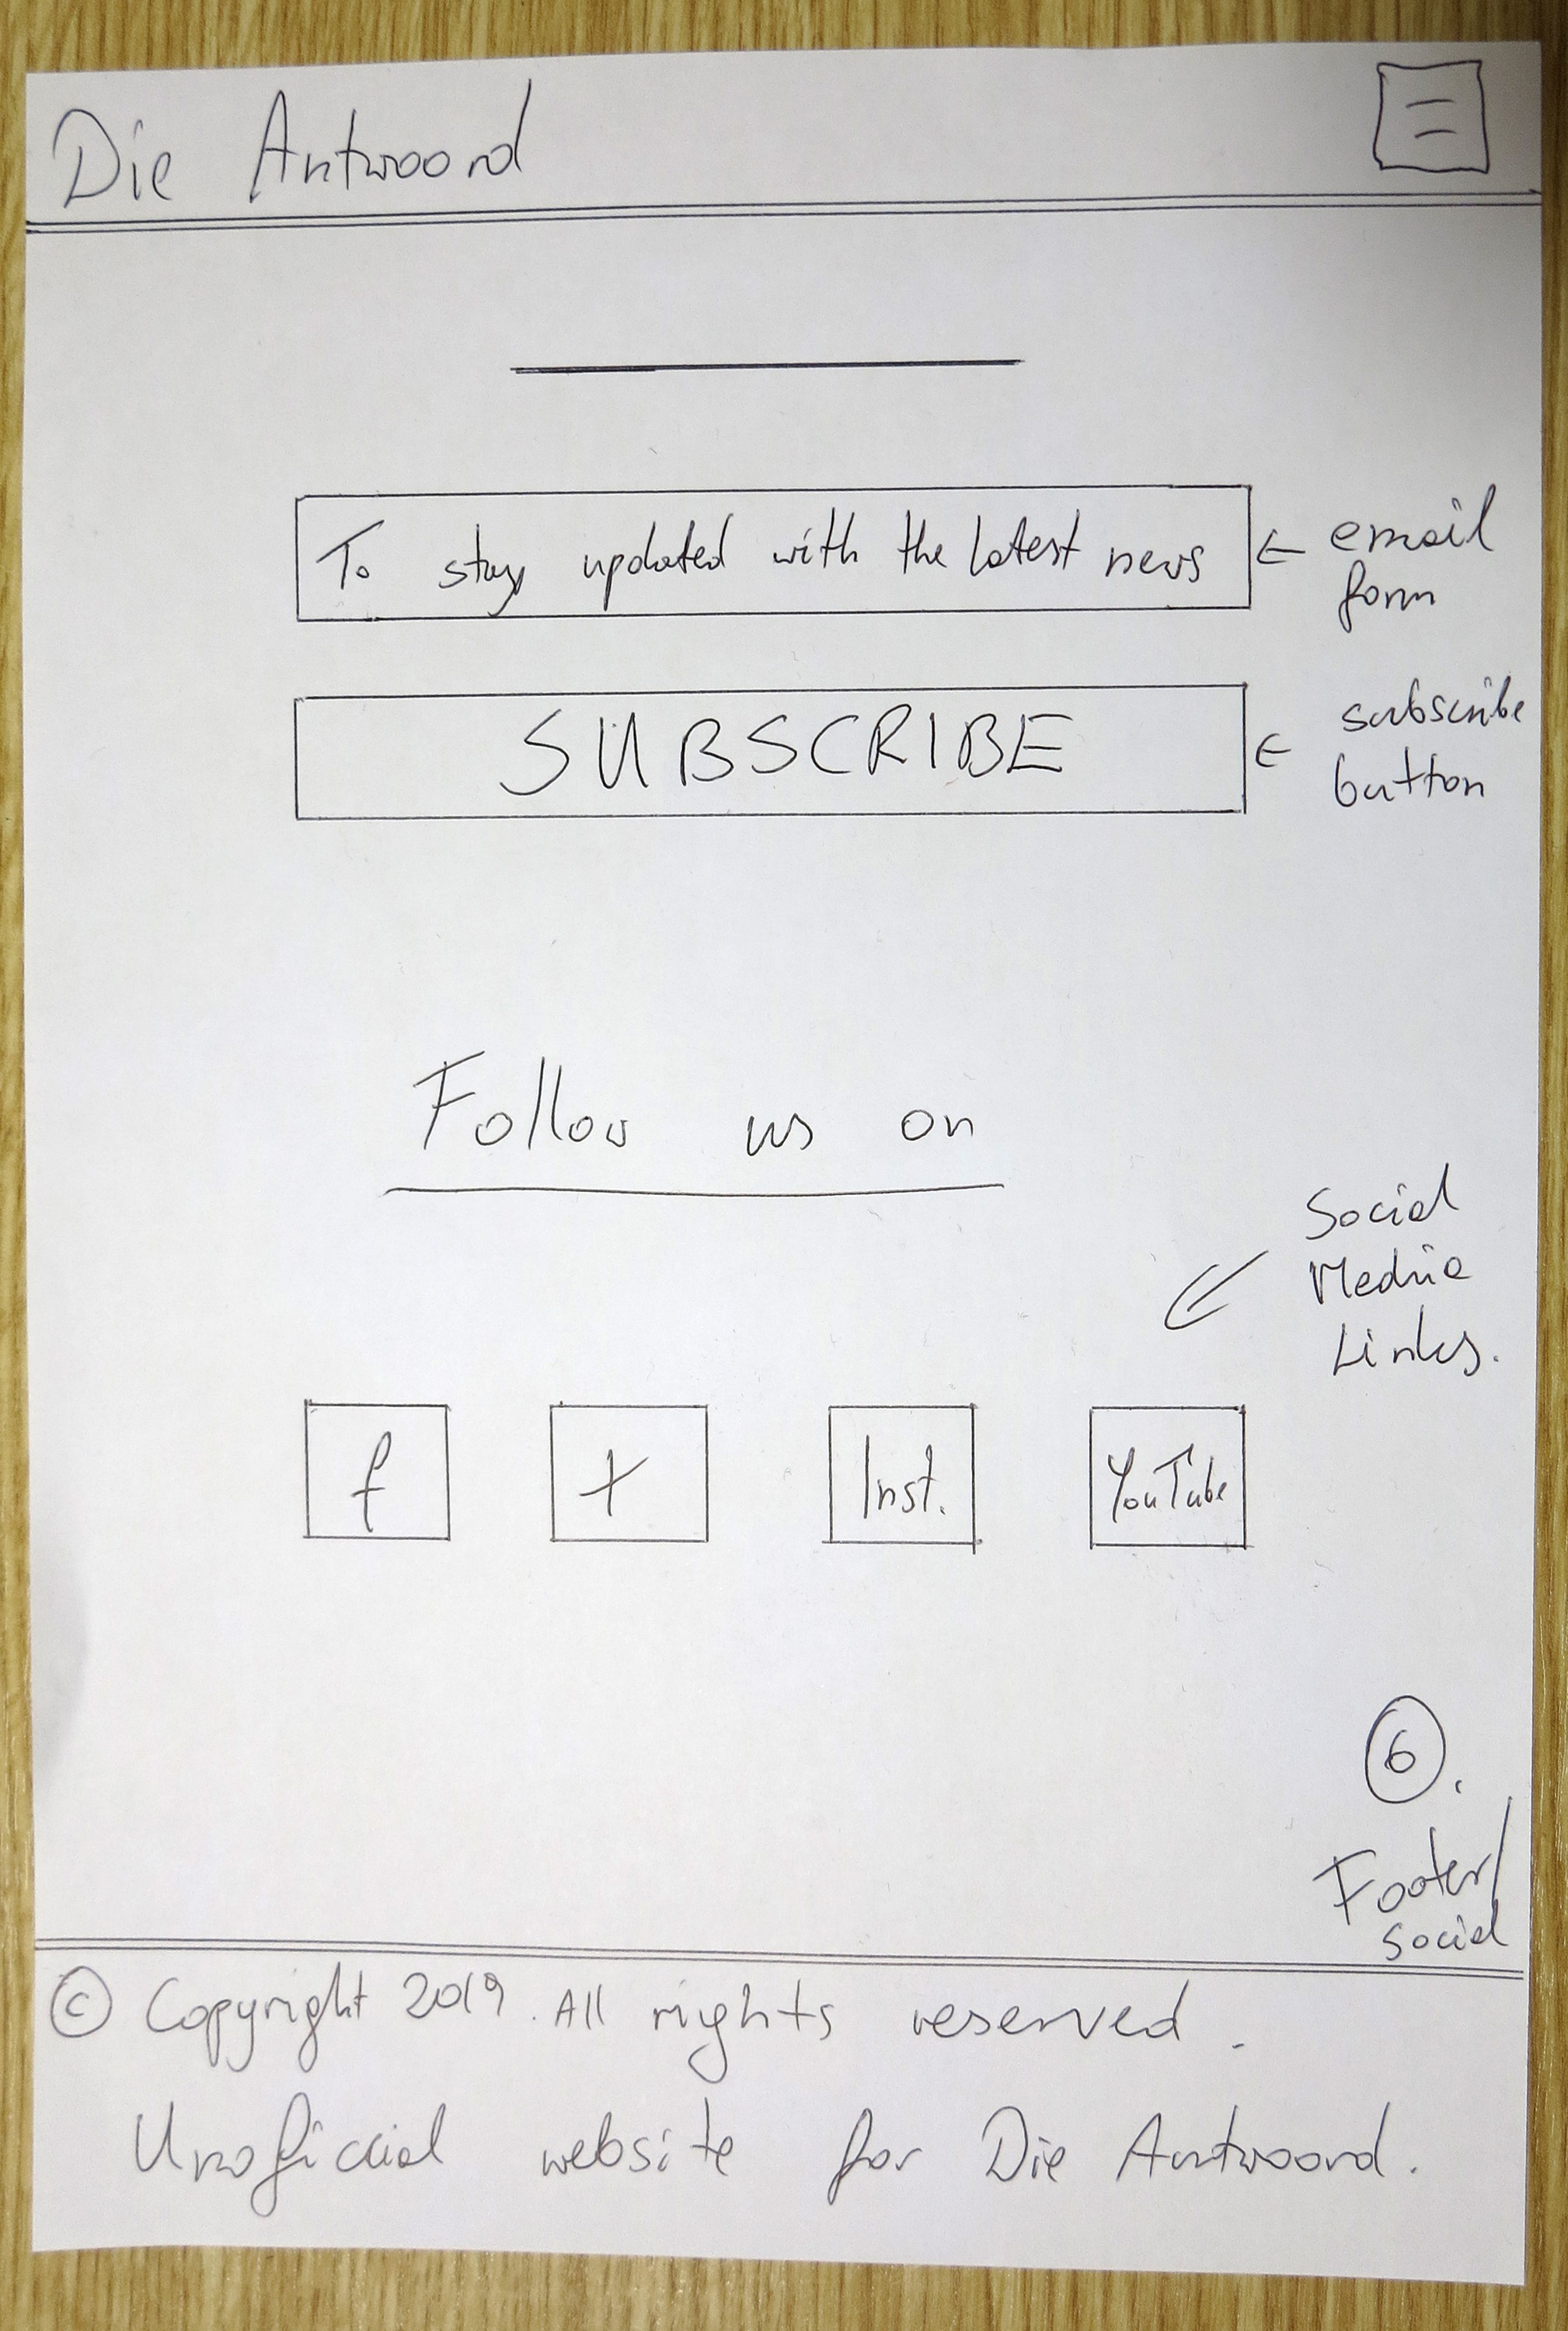 Die Antwoord
To stay updated with the latest news
← email
form
SUBSCRIBE
← subscribe
button
Follow us on
Social
Media
Links.
f
t
Inst.
YouTube
6.
Footer/
social
© Copyright 2019. All rights reserved.
Unoficcial website for Die Antwoord.